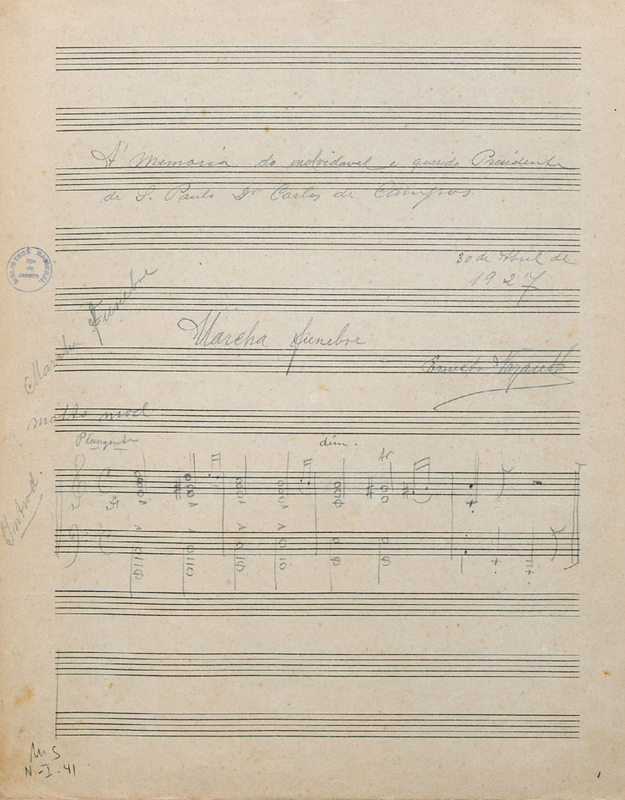 A' Memoria do inolvidavel e querido Presidente
de S. Paulo Dr Carlos de Campos.
30 de Abril de
1927
BIBLIOTECA NACIONAL
Rio de Janeiro
Marcha Funebre
Marcha funebre
Ernesto Nazareth
Plangente
dim.
Introd.
MS
N-I-41